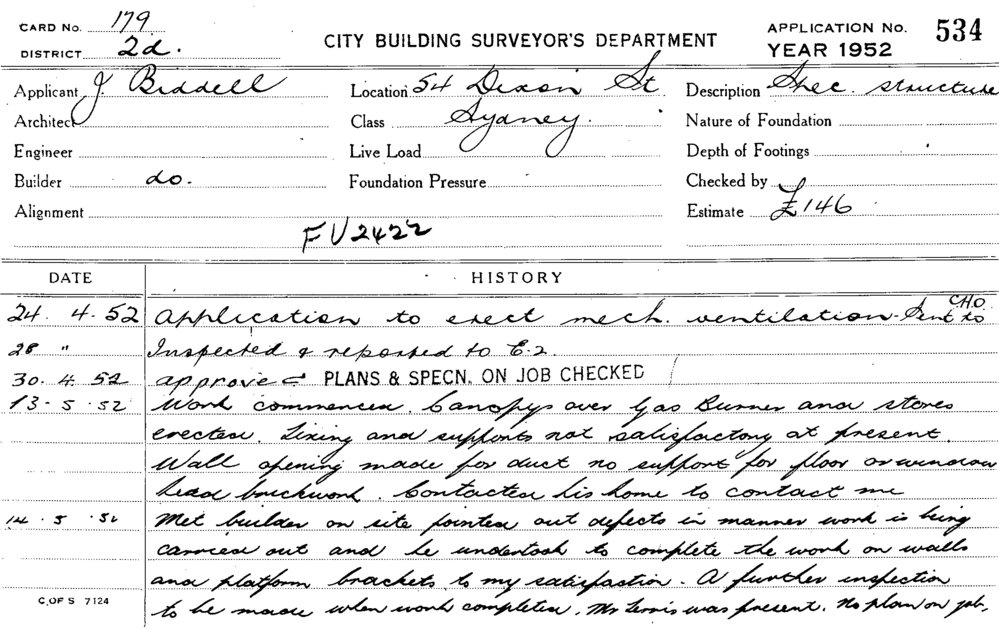 CARD No. 179
DISTRICT 2d.
CITY BUILDING SURVEYOR'S DEPARTMENT
APPLICATION No. 534
YEAR 1952
Applicant J Biddell
Location 54 Dixon St
Description Spec. structure
Architect
Class Sydney.
Nature of Foundation
Engineer
Live Load
Depth of Footings
Builder do.
Foundation Pressure
Checked by
Alignment
Estimate £146
FU2422
DATE HISTORY
24. 4. 52 Application to erect mech. ventilation - Sent to C.H.O.
28 " Inspected & reported to E.2.
30. 4. 52 approved PLANS & SPECN. ON JOB CHECKED
13. 5. 52 Work commenced. Canopys over Gas Burner and stoves
erected. Fixing and supports not satisfactory at present.
Wall opening made for duct no support for floor or window
head brickwork. Contacted his home to contact me
14. 5. 52 Met builder on site pointed out defects in manner work is being
carried out and he undertook to complete the work on walls
and platform brackets to my satisfaction. A further inspection
to be made when work completed. Mr was present. No plan on job.
C. OF S 7124